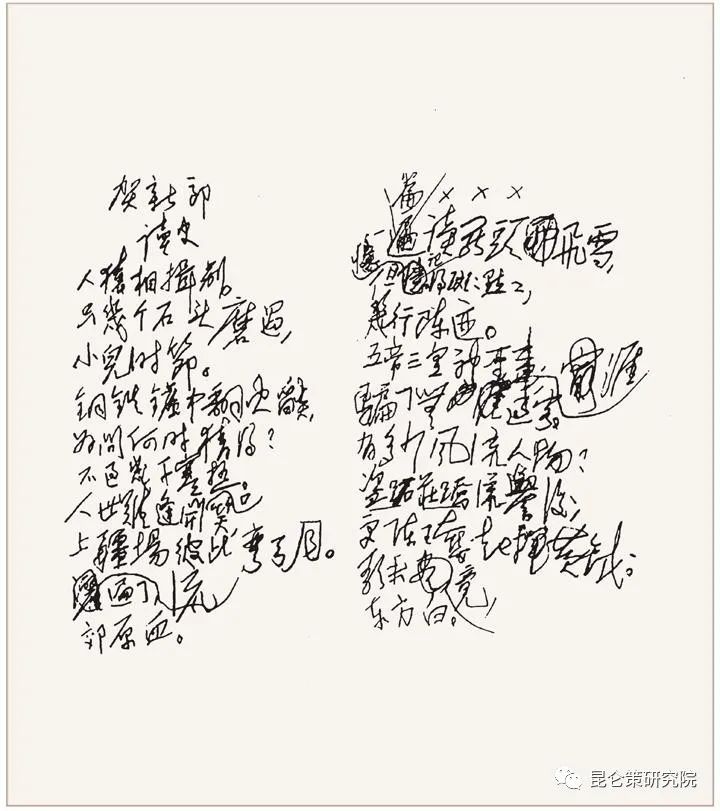 贺新郎
读史
人猿相揖别。
只幾个石头磨过,
小兒时節。
铜铁鑪中翻火焰,
为问何时猜得?
不过幾千寒热。
人世难逢開口笑。
上疆場彼此弯弓月。
流遍了,
郊原血。
× × ×
一篇读罢頭飞雪,
但记得斑斑点点,
幾行陈迹。
五帝三皇神圣事,
骗了无涯过客。
有多少风流人物?
盗跖莊蹻流譽後,
更陈王奮起挥黄钺。
歌未竟,
东方白。
昆仑策研究院